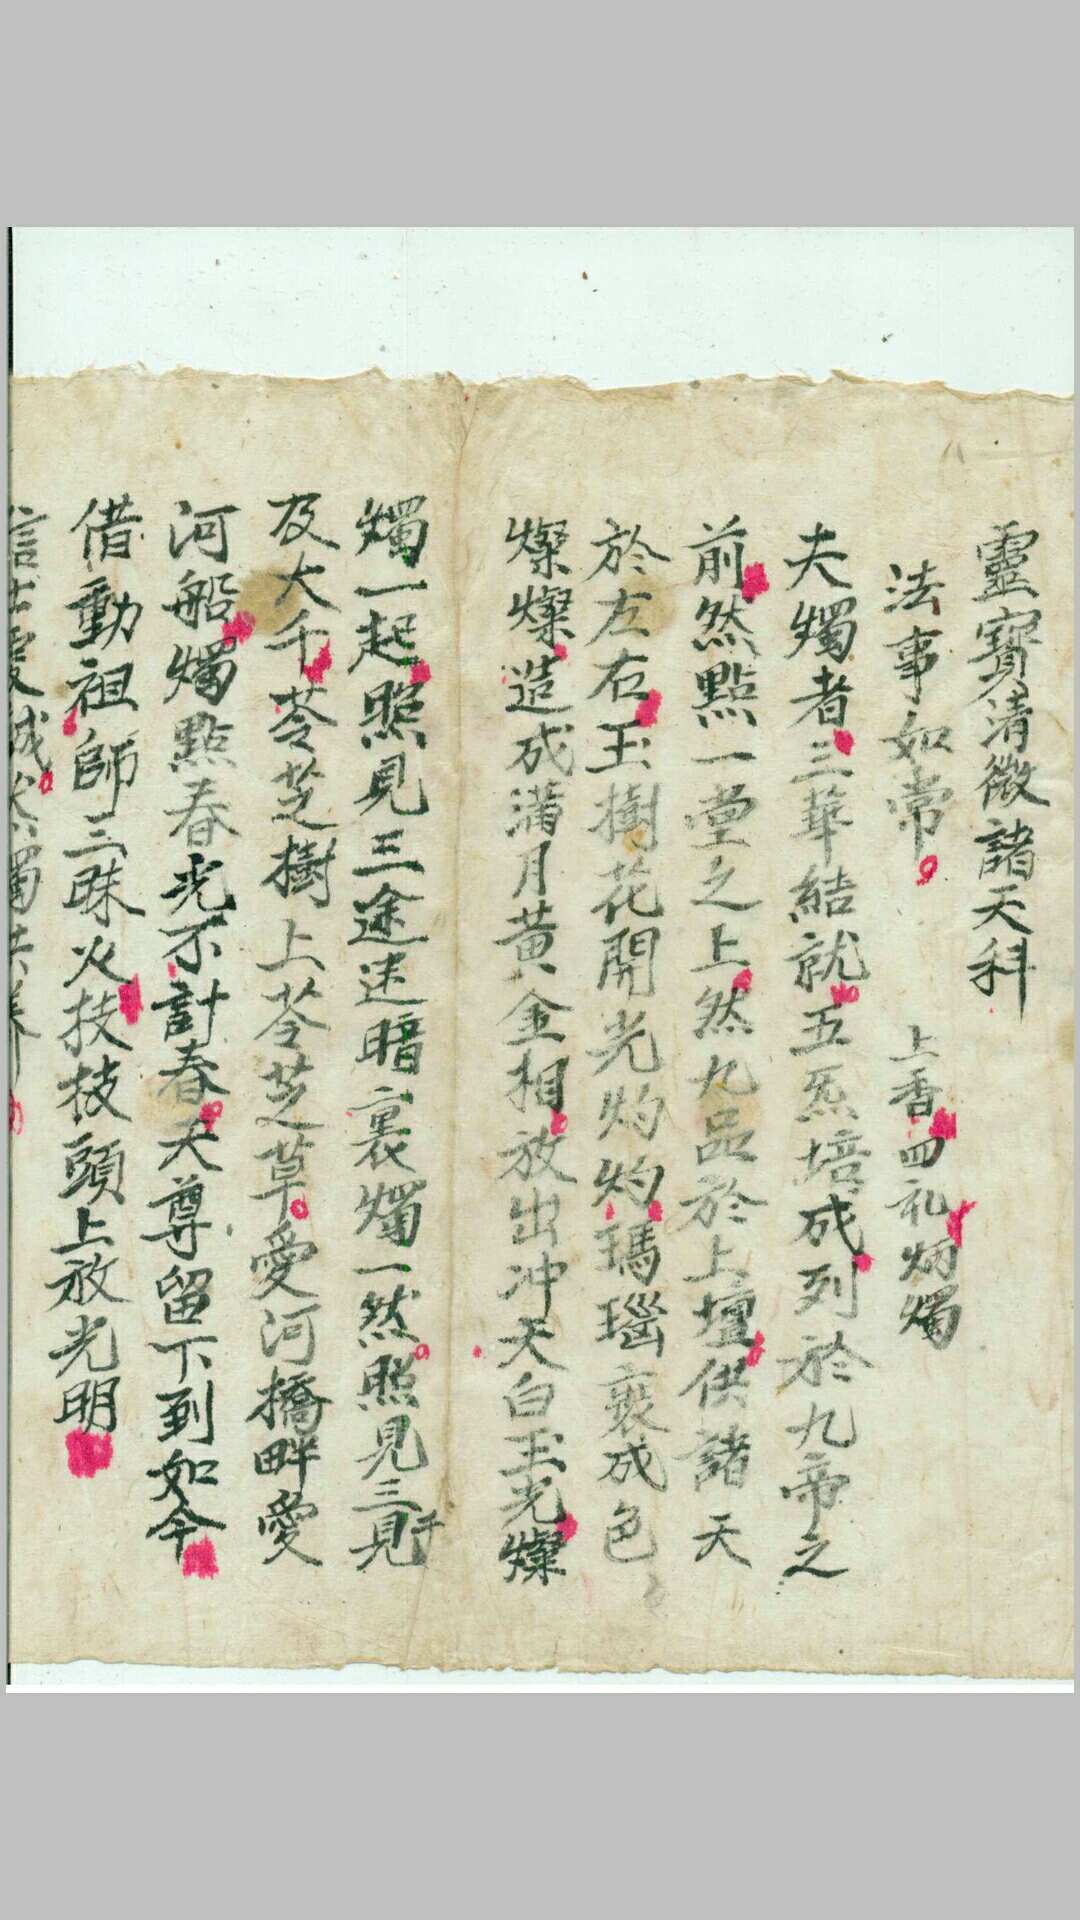 靈寶清微諸天科
法事如常 上香四礼炳燭
夫燭者三華結就五炁培成列於九帝之
前然點一堂之上然九品於上壇供諸天
於左右玉樹花開光灼灼瑪瑙裝成色
燦燦造成滿月黃金相放出冲天白玉光燦
燭一起照見三途迷暗裏燭一然照見三千見
及大千苓芝樹上苓芝草愛河橋畔愛
河船燭點春光不計春天尊留下到如今
借動祖師三昧火技技頭上放光明
信士虔誠然燭供養